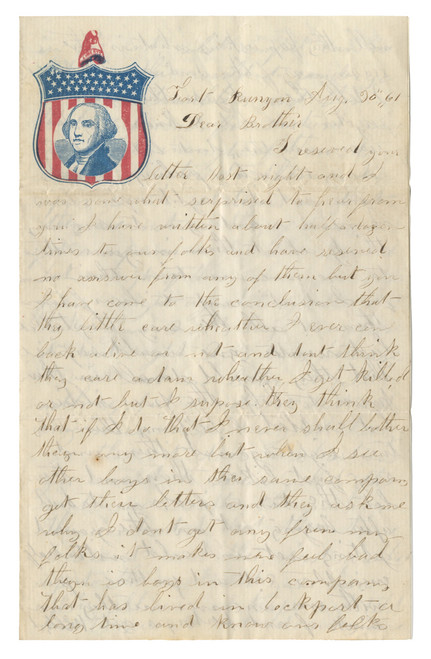 Fort Runyon Aug. 30th, 61
Dear Brother
I reseved your
letter last night and I
was some what serprised to hear from
you I have written about half a dozen
times to your folks and have reseved
no answer from any of them but you
I have come to the conclusion that
they little care whether I ever com
back alive or not and dont think
they care a dam whether I get killed
or not but I supose they think
that if I do that I never shall bother
them any more but when I see
other boys in the same company
get their letters and they ask me
why I dont get any from my
folks it makes me feel bad
their is boys in this company
that has lived in lockport a
long time and know our folks